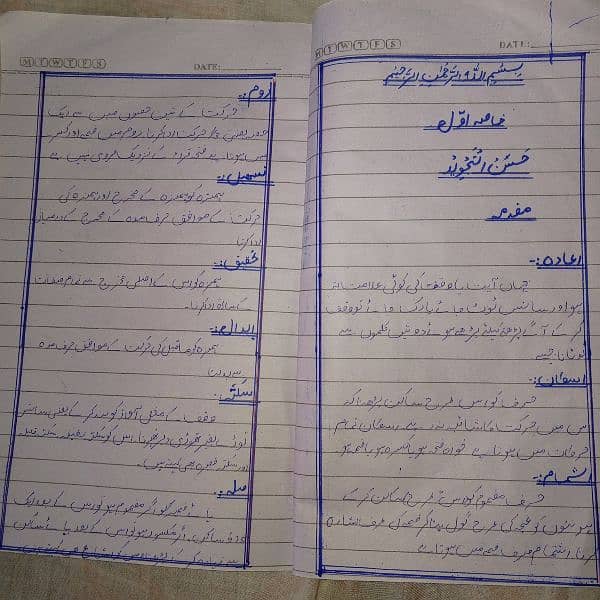 M T W T F S
DATE:
بسم الله الرحمن الرحيم
خاصہ اوّل
حسن التجوید
مقدمہ
اعادہ:-
جہاں آیت یا وقف کی کوئی علامت نہ
ہو اور سانس ٹوٹ جائے یا رک جائے تو وقف
کر کے آگے پڑھنے کیلئے پڑھے ہوئے دو تین کلموں سے
لوٹانا جیسے
اسکان:-
حرف کو اس طرح ساکن پڑھنا کہ
اس میں حرکت کا اثر نہ رہے۔ اسکان تمام
حرکات میں ہوتا ہے خواہ فتحہ ہو یا کسرہ ہو یا ضمہ ہو
اشمام:-
حرف مضموم کو اس طرح ساکن کر کے
ہونٹوں کو ضمہ کی طرح گول بنا کر ضمہ کی طرف اشارہ
کرنا۔ اشمام صرف ضمہ میں ہوتا ہے
M T W T F S
DATE:
روم:-
حرکت کے تین حصوں میں سے ایک
حصہ یعنی حرکت ادا کرنا روم میں ضمہ اور کسرہ
میں ہوتا ہے فتحہ قراء کے نزدیک مروی نہیں ہے
تسہیل:-
ہمزہ کو ہمزہ کے مخرج اور ہمزہ کی
حرکت کے موافق حرف مدہ کے مخرج کے درمیان
ادا کرنا
تحقیق:-
ہمزہ کو اس کے اصلی مخرج سے تمام صفات
کے ساتھ ادا کرنا۔
ابدال:-
ہمزہ کو ماقبل کی حرکت کے موافق حرف مدہ
سے بدلنا
سکتہ:-
وقف کے مثل آواز کو بند کر کے یعنی سانس
توڑے بغیر تھوڑی دیر ٹھہرنا اس کو سکتہ
اور سکتہ بھی کہتے ہیں۔
صلہ:-